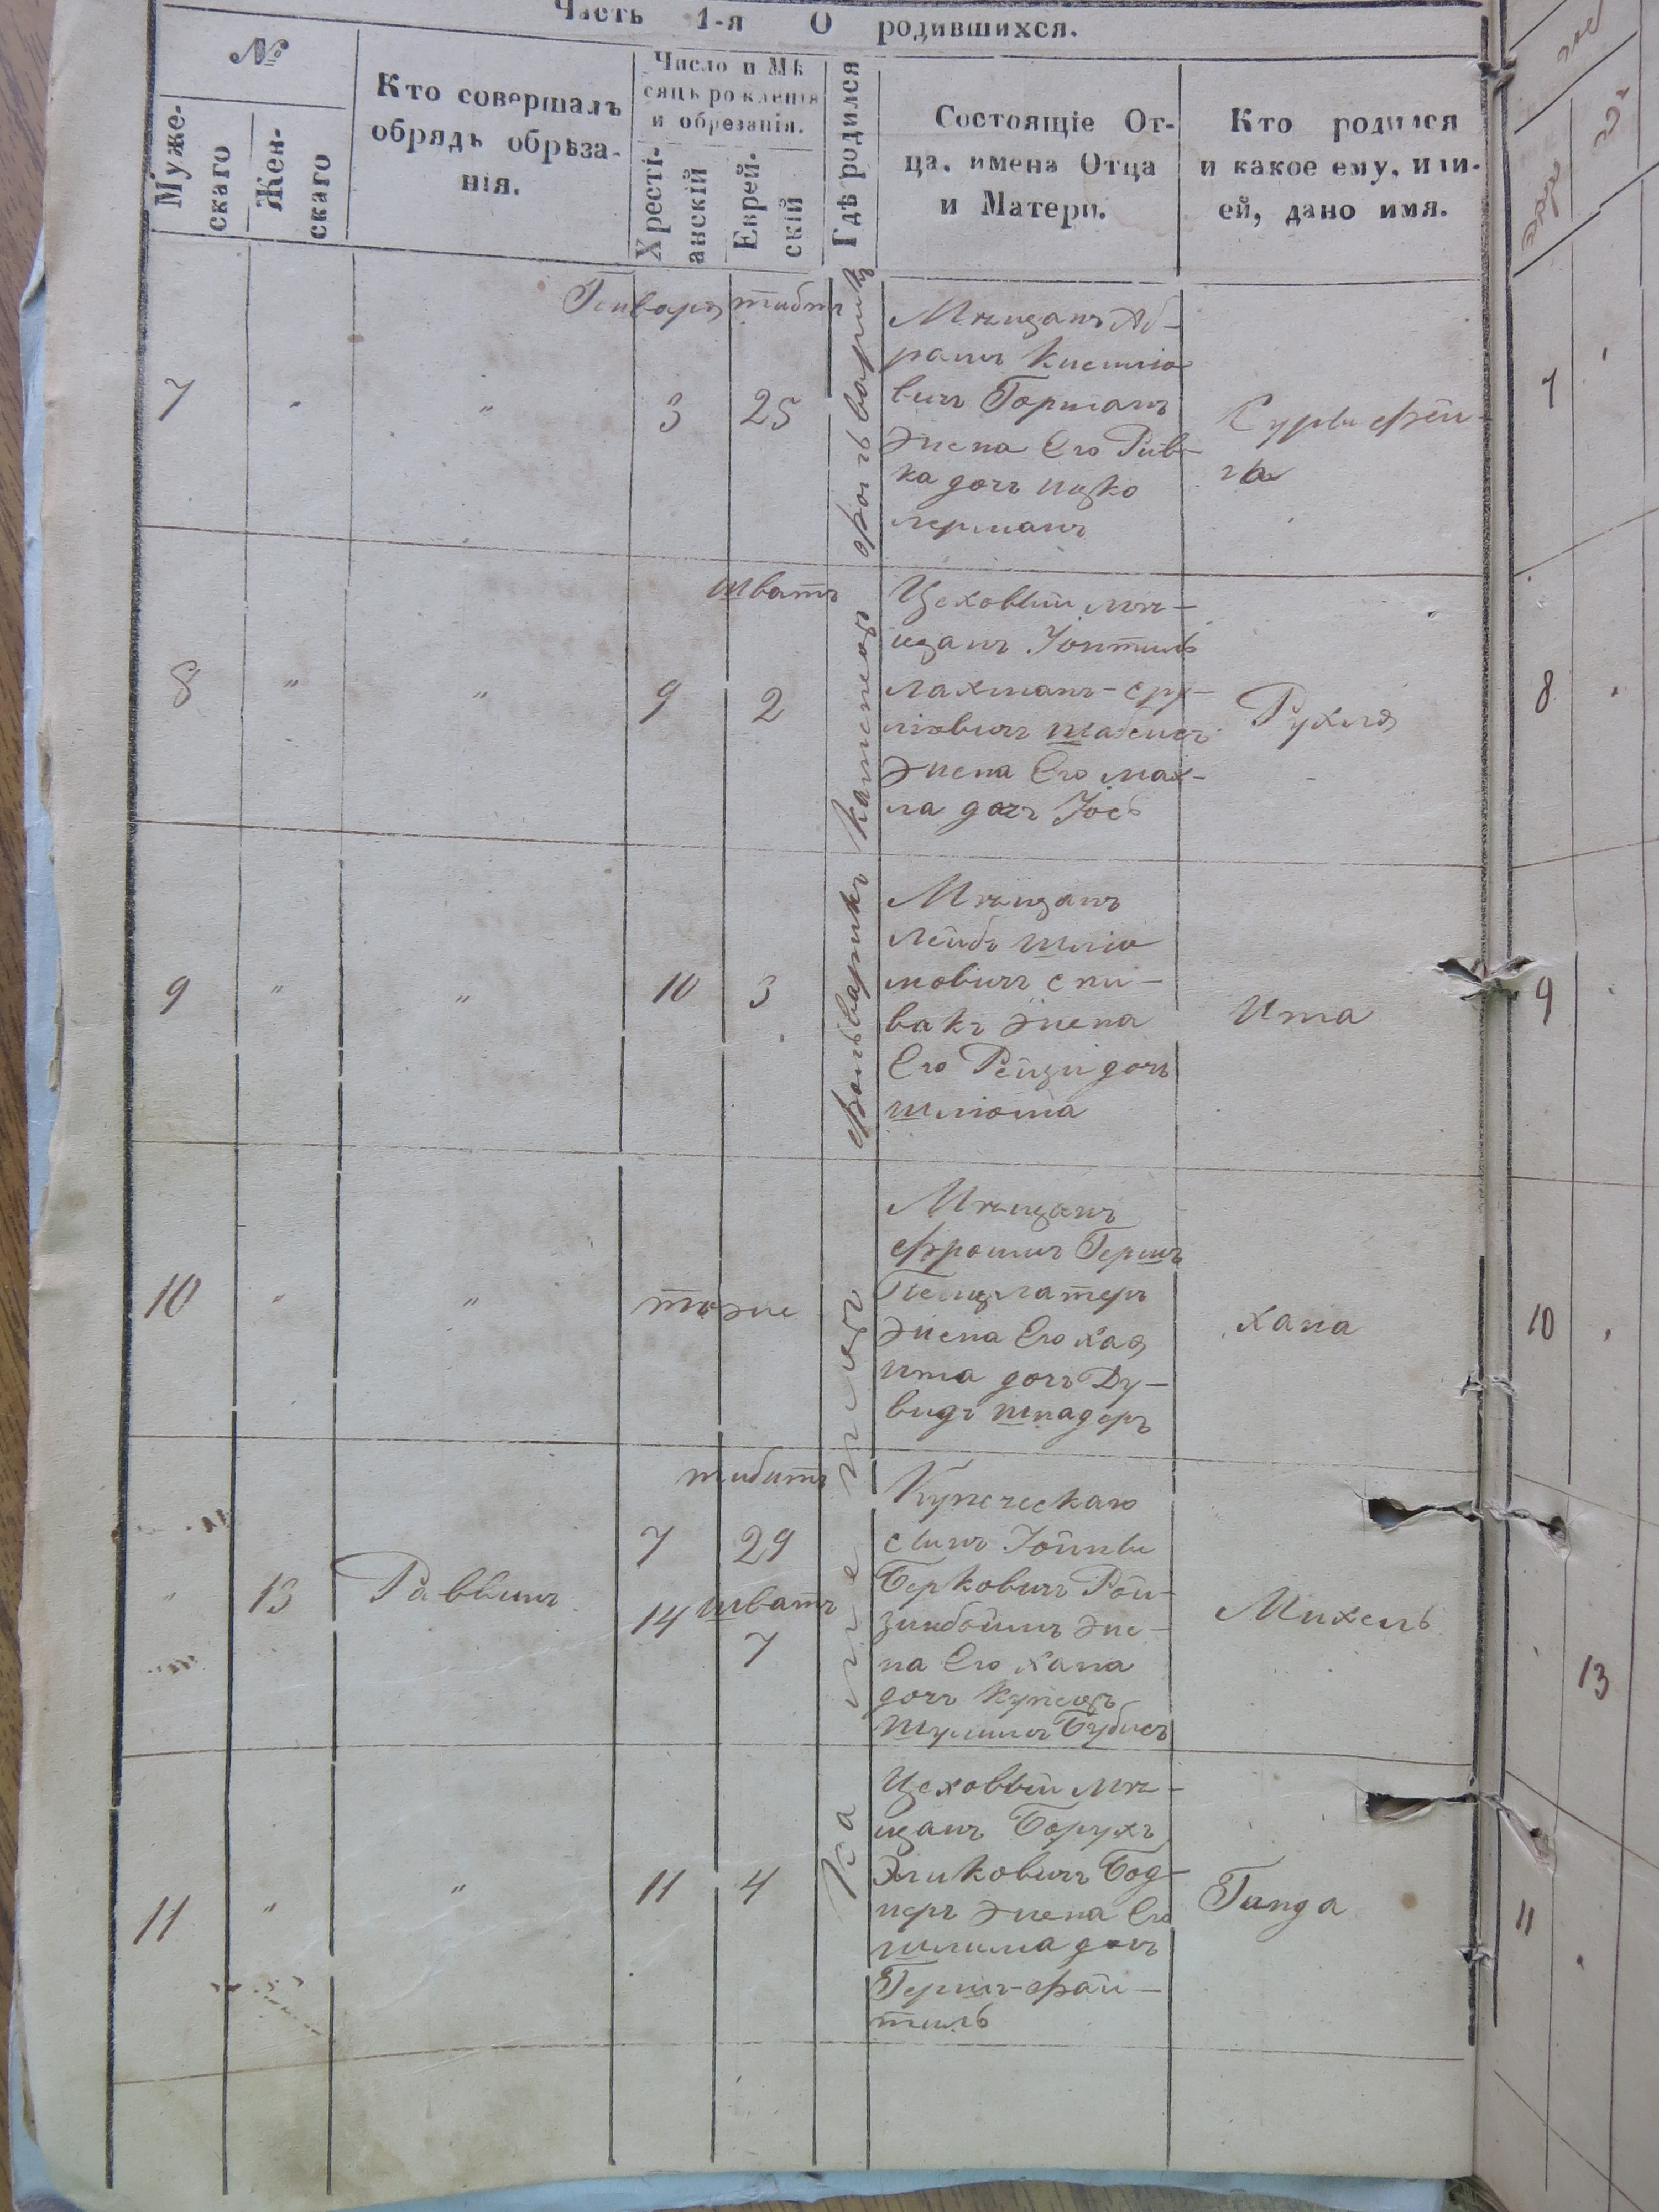 Часть 1-я О родившихся.
№
Муже-
скаго
Жен-
скаго
Кто совершалъ
обрядъ обрѣза-
нія.
Число и Мѣ
сяцъ рожденія
и обрезанія.
Хресті-
анскій
Еврей-
скій
Гдѣ родился
Состоящіе От-
ца, имена Отца
и Матери.
Кто родился
и какое ему, или
ей, дано имя.
Генваря тибтъ
7 " " 3 25
Мѣщанъ Аб-
рамъ Кисилiо
вичъ Горманъ
жена Его Рив-
ка дочъ ицко
лерманъ
Суры фей-
га
7
шватъ
8 " " 9 2
Цеховый мѣ-
щанъ Іонтиль
лахманъ-сру-
ліовичъ
жена Его мах-
ла дочъ Іось
Рухля
8
9 " " 10 3
Мѣщанъ
Лейбъ шліо
мовичъ спи-
вакъ жена
Его Рейзи дочъ
шліома
Ита
9
10 " " тоже
Мѣщанъ
Фроимъ Гершъ
жена Его хая
ита дочъ Ду-
видъ шнадеръ
хана
10
тибитъ
7 29
" 13 Раввинъ
14 шватъ
7
Купеческаго
сынъ
Берковичъ Рой-
зинбоймъ же-
на Его хана
дочъ купецъ
шулимъ
Михель
13
11 " " 11 4
Цеховый мѣ-
щанъ Борухъ
Эликовичъ Бод-
неръ жена Его
шлима дочъ
Гершъ-фай-
тиль
Гинда
11